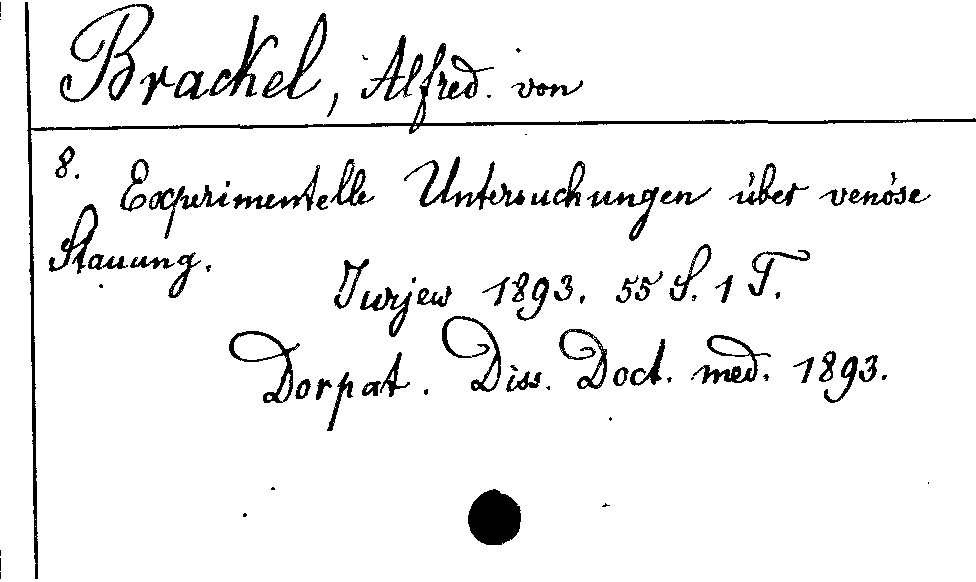 Brackel, Alfred. von
8.
Experimentelle Untersuchungen über venöse
Stauung.
Jurjew 1893. 55 S. 1 T.
Dorpat. Diss. Doct. med. 1893.